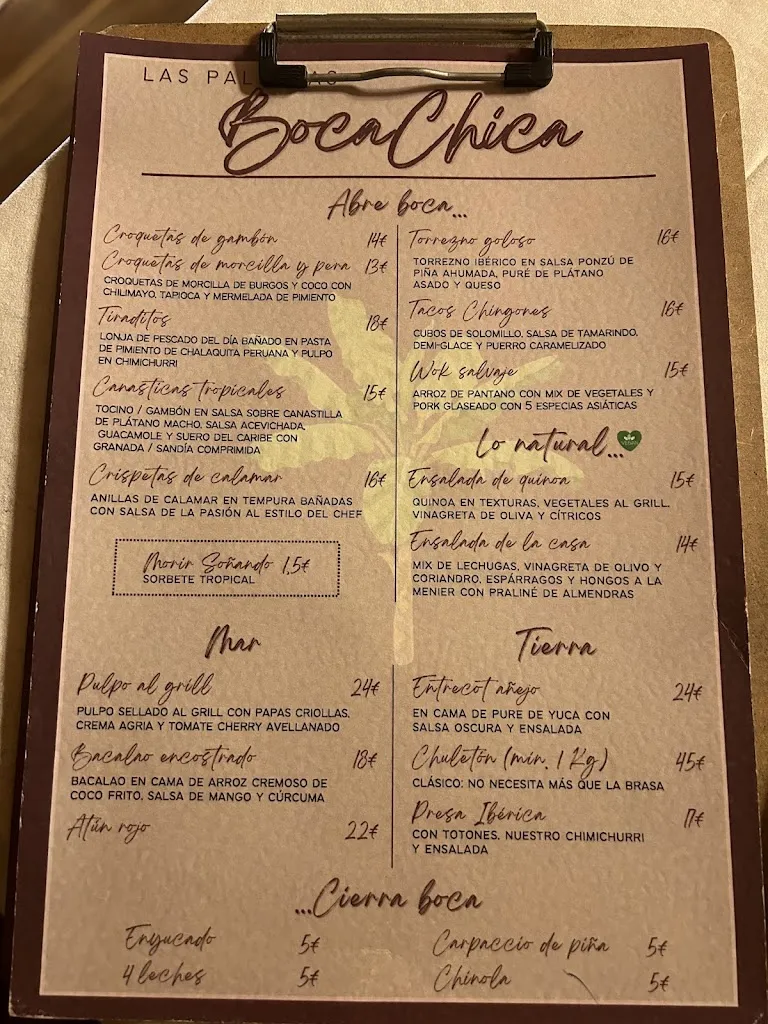 LAS PAL
BocaChica
Abre boca...
Croquetas de gambón 14€
Croquetas de morcilla y pera 13€
CROQUETAS DE MORCILLA DE BURGOS Y COCO CON
CHILIMAYO, TAPIOCA Y MERMELADA DE PIMIENTO
Tiraditos 18€
LONJA DE PESCADO DEL DÍA BAÑADO EN PASTA
DE PIMIENTO DE CHALAQUITA PERUANA Y PULPO
EN CHIMICHURRI
Canasticas tropicales 15€
TOCINO / GAMBÓN EN SALSA SOBRE CANASTILLA
DE PLÁTANO MACHO, SALSA ACEVICHADA,
GUACAMOLE Y SUERO DEL CARIBE CON
GRANADA / SANDÍA COMPRIMIDA
Crispetas de calamar 16€
ANILLAS DE CALAMAR EN TEMPURA BAÑADAS
CON SALSA DE LA PASIÓN AL ESTILO DEL CHEF
Morir Soñando 1,5€
SORBETE TROPICAL
Torrezno goloso 16€
TORREZNO IBÉRICO EN SALSA PONZÚ DE
PIÑA AHUMADA, PURÉ DE PLÁTANO
ASADO Y QUESO
Tacos Chingones 16€
CUBOS DE SOLOMILLO, SALSA DE TAMARINDO,
DEMI-GLACE Y PUERRO CARAMELIZADO
Wok salvaje 15€
ARROZ DE PANTANO CON MIX DE VEGETALES Y
PORK GLASEADO CON 5 ESPECIAS ASIÁTICAS
Lo natural...
Ensalada de quinoa 15€
QUINOA EN TEXTURAS, VEGETALES AL GRILL,
VINAGRETA DE OLIVA Y CÍTRICOS
Ensalada de la casa 14€
MIX DE LECHUGAS, VINAGRETA DE OLIVO Y
CORIANDRO, ESPÁRRAGOS Y HONGOS A LA
MENIER CON PRALINÉ DE ALMENDRAS
Mar
Pulpo al grill 24€
PULPO SELLADO AL GRILL CON PAPAS CRIOLLAS,
CREMA AGRIA Y TOMATE CHERRY AVELLANADO
Bacalao encostrado 18€
BACALAO EN CAMA DE ARROZ CREMOSO DE
COCO FRITO, SALSA DE MANGO Y CÚRCUMA
Atún rojo 22€
Tierra
Entrecot añejo 24€
EN CAMA DE PURE DE YUCA CON
SALSA OSCURA Y ENSALADA
Chuletón (min. 1 Kg) 45€
CLÁSICO: NO NECESITA MÁS QUE LA BRASA
Presa Ibérica 17€
CON TOTONES, NUESTRO CHIMICHURRI
Y ENSALADA
...Cierra boca
Enyucado 5€
4 leches 5€
Carpaccio de piña 5€
Chinola 5€